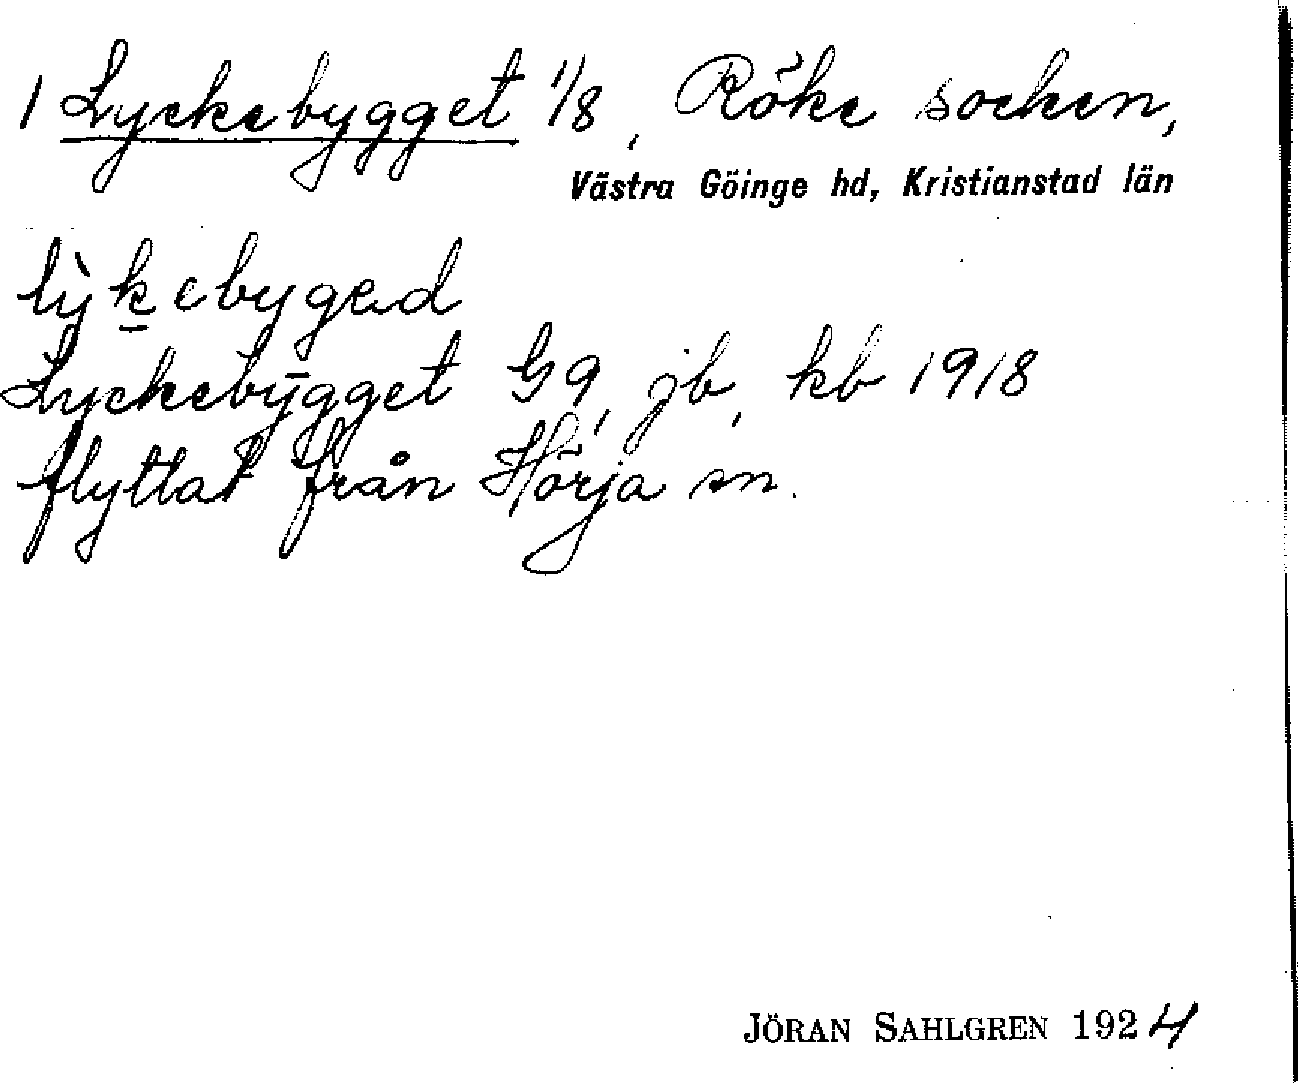 1 Lyckebygget 1/8, Röke socken,
Västra Göinge hd, Kristianstad län
lỳk̲ebygəd
Lyckebygget G9, jb, kb 1918
flyttat från Hörja sn.
JÖRAN SAHLGREN 1924